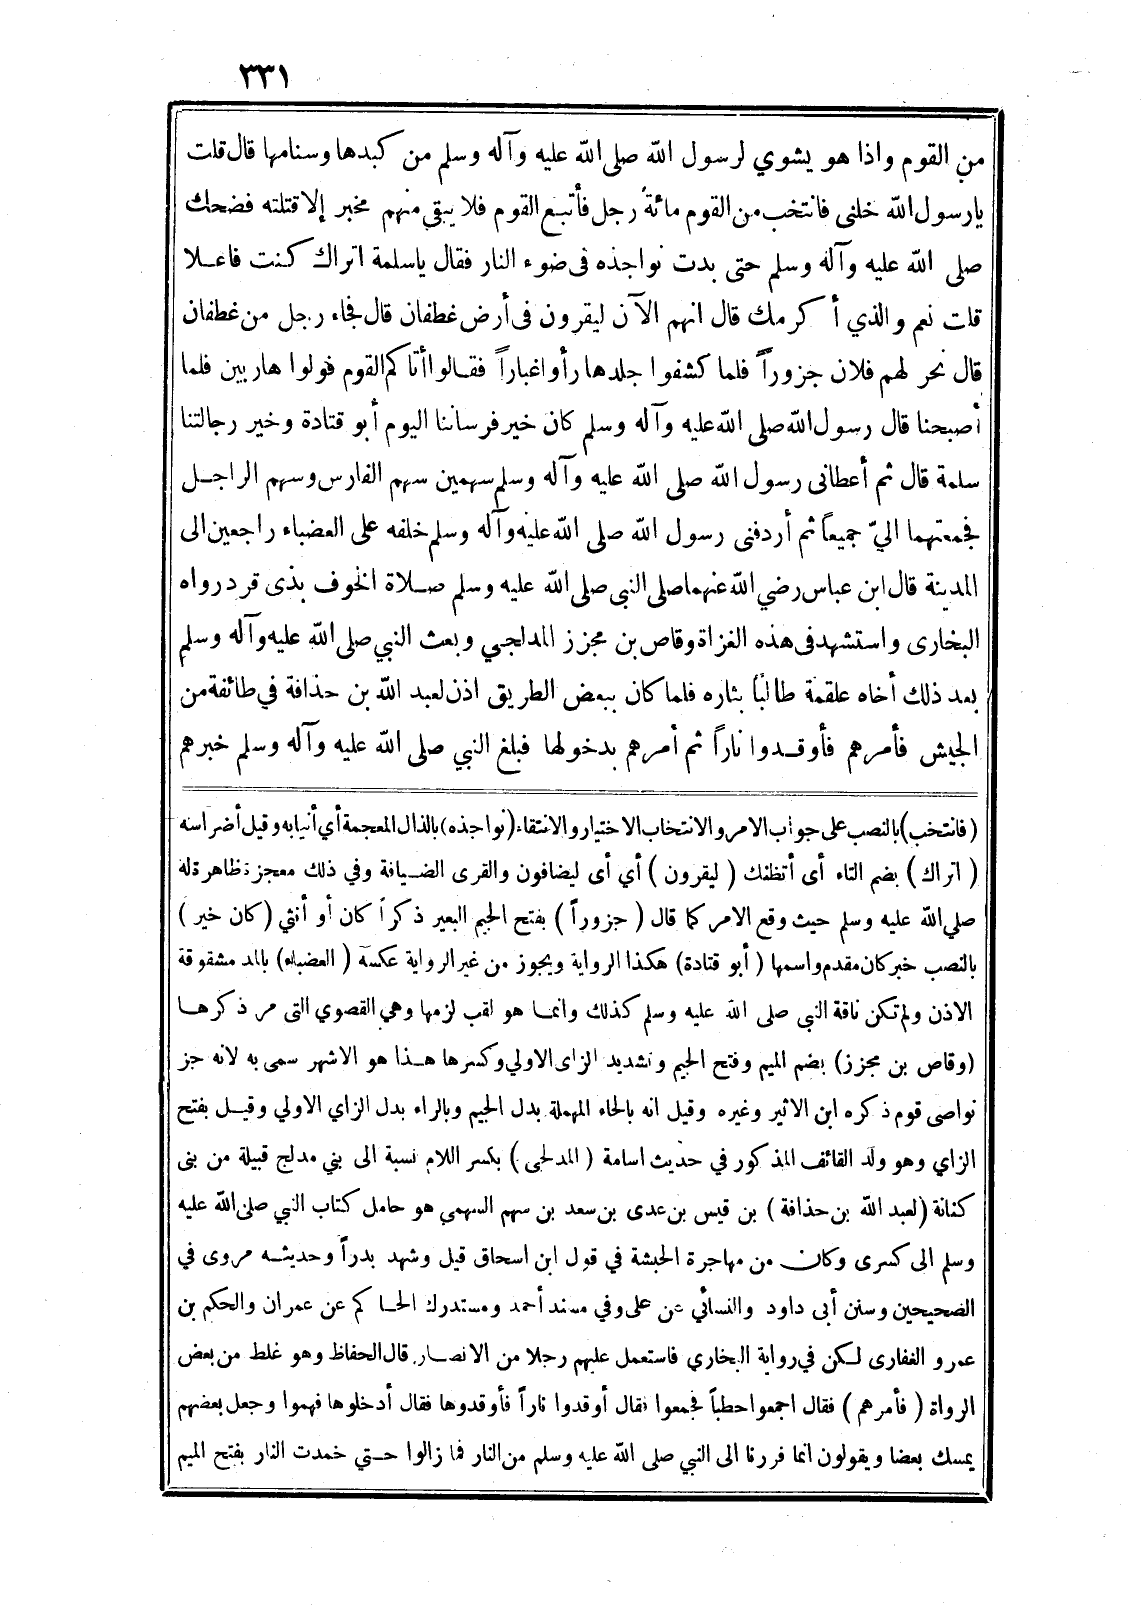 ٣٣١
من القوم واذا هو يشوي لرسول الله صلى الله عليه وآله وسلم من كبدها وسنامها قال قلت
يارسول الله خلنى فانتخب من القوم مائة رجل فأتبع القوم فلا يبقى منهم مخبر إلا قتلته فضحك
صلى الله عليه وآله وسلم حتى بدت نواجذه فى ضوء النار فقال ياسلمة اتراك كنت فاعلا
قلت نعم والذي أكرمك قال انهم الآن ليقرون فى أرض غطفان قال فجاء رجل من غطفان
قال نحر لهم فلان جزوراً فلما كشفوا جلدها رأوا غباراً فقالوا أتاكم القوم فولوا هاربين فلما
أصبحنا قال رسول الله صلى الله عليه وآله وسلم كان خير فرساننا اليوم أبو قتادة وخير رجالتنا
سلمة قال ثم أعطانى رسول الله صلى الله عليه وآله وسلم سهمين سهم الفارس وسهم الراجل
فجمعتهما اليّ جميعاً ثم أردفنى رسول الله صلى الله عليه وآله وسلم خلفه على العضباء راجعين الى
المدينة قال ابن عباس رضي الله عنهما صلى النبى صلى الله عليه وسلم صلاة الخوف بذى قرد رواه
البخارى واستشهد فى هذه الغزاة وقاص بن مجزز المدلجي وبعث النبي صلى الله عليه وآله وسلم
بعد ذلك أخاه علقمة طالباً بثاره فلما كان ببعض الطريق اذن لعبد الله بن حذافة في طائفة من
الجيش فأمرهم فأوقدوا ناراً ثم أمرهم بدخولها فبلغ النبي صلى الله عليه وآله وسلم خبرهم
(فانتخب) بالنصب على جواب الامر والانتخاب الاختيار والانتقاء (نواجذه) بالذال المعجمة أي أنيابه وقيل أضراسه
(اتراك) بضم التاء أى أتظنك (ليقرون) أي أى ليضافون والقرى الضيافة وفي ذلك معجزة ظاهرة له
صلي الله عليه وسلم حيث وقع الامر كما قال (جزوراً) بفتح الجيم البعير ذكراً كان أو أنثي (كان خير)
بالنصب خبر كان مقدم واسمها (أبو قتادة) هكذا الرواية ويجوز من غير الرواية عكسه (العضباء) بالمد مشقوقة
الاذن ولم تكن ناقة النبي صلى الله عليه وسلم كذلك وانما هو لقب لزمها وهي القصوي التى مر ذكرها
(وقاص بن مجزز) بضم الميم وفتح الجيم وتشديد الزاى الاولي وكسرها هذا هو الاشهر سمى به لانه جز
نواصى قوم ذكره ابن الاثير وغيره وقيل انه بالحاء المهملة بدل الجيم وبالراء بدل الزاي الاولي وقيل بفتح
الزاي وهو ولد القائف المذكور في حديث اسامة (المدلجى) بكسر اللام نسبة الى بني مدلج قبيلة من بنى
كنانة (لعبد الله بن حذافة) بن قيس بن عدى بن سعد بن سهم السهمي هو حامل كتاب النبي صلى الله عليه
وسلم الى كسرى وكان من مهاجرة الحبشة في قول ابن اسحاق قيل وشهد بدراً وحديثه مروى في
الصحيحين وسنن أبى داود والنسائي عن على وفي مسند أحمد ومستدرك الحاكم عن عمران والحكم بن
عمرو الغفارى لكن في رواية البخاري فاستعمل عليهم رجلا من الانصار قال الحفاظ وهو غلط من بعض
الرواة (فأمرهم) فقال اجمعوا حطباً فجمعوا فقال أوقدوا ناراً فأوقدوها فقال أدخلوها فهموا وجعل بعضهم
يمسك بعضا ويقولون انما فررنا الى النبي صلى الله عليه وسلم من النار فما زالوا حتي خمدت النار بفتح الميم